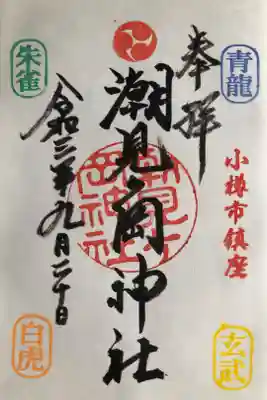 奉拝
青龍
小樽市鎮座
玄武
潮見岡神社
潮見岡神社
朱雀
令和三年九月二十日
白虎